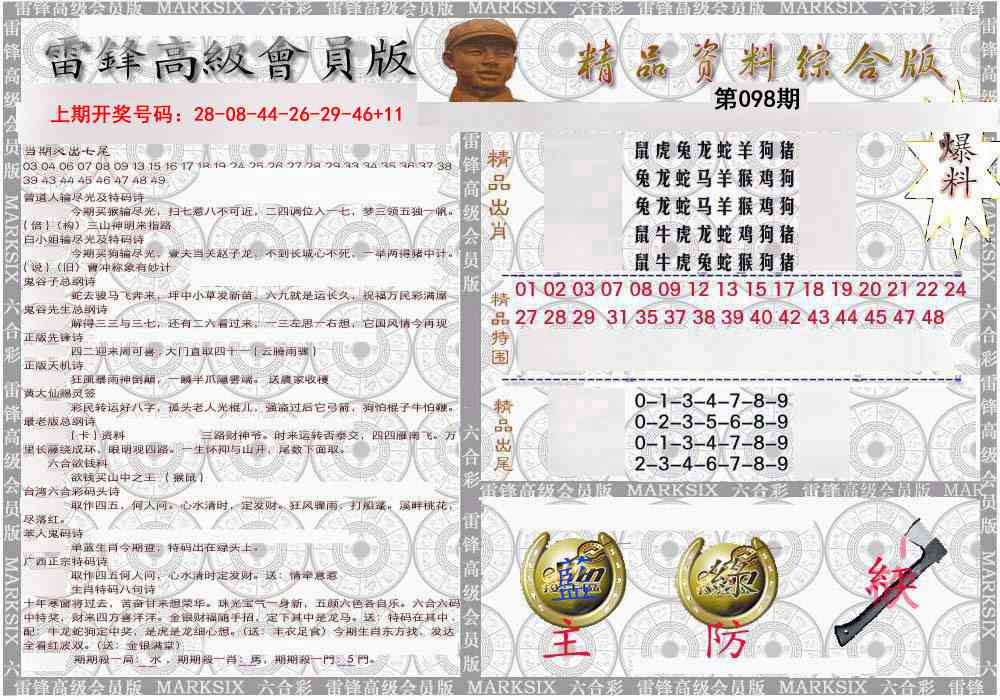 雷锋高级会员版 MARKSIX 六合彩 雷锋高级会员版 MARKSIX 六合彩 雷锋高级会员版 MARKSIX 六合彩 雷锋
雷鋒高級會員版
精品资料综合版
第098期
上期开奖号码：28-08-44-26-29-46+11
爆料
当期必出七尾
03 04 06 07 08 09 13 15 16 17 18 19 24 25 26 27 28 29 33 34 35 36 37 38
39 43 44 45 46 47 48 49
曾道人输尽光及特码诗
今期买猴输尽光，扫七惹八不可近，二四调位入一七，梦三领五独一帆。
{倍}（构）三山神明来指路
白小姐输尽光及特码诗
今期买狗输尽光，壹夫当关赵子龙，不到长城心不死，一举两得猪中计。
{说}（旧）曹冲称象有妙计
鬼谷子总纲诗
蛇去骏马飞奔来，坪中小草发新苗，六九就是运长久，祝福万民彩满屋
鬼谷先生总纲诗
解得三三与三七，还有二六看过来，一三左思一右想，它国风情今再现
正版先锋诗
四二迎来周可喜，大门直取四十一{云腾雨骤}
正版天机诗
狂風暴雨神倒顛，一瞬半爪隱雲端。送農家收穫
黄大仙赐灵签
彩民转运好八字，孤头老人光棍儿，强盗过后它弓箭，狗怕棍子牛怕鞭。
最老版总纲诗
{卡}资料 三路财神爷。时来运转否泰交，四四雁南飞。万
里长藤绕成环，眼明观四路。一生怀抑与山开，尾数下面取。
六合欲钱料
欲钱买山中之王（猴鼠）
台湾六合彩码头诗
取作四五，何人问。心水清时，定发财。狂风骤雨，打船蓬。溪畔桃花，
尽落红。
苯人鬼码诗
单蓝生肖今期查，特码出在绿头上。
广西正宗特码诗
取作四五何人问，心水清时定发财。送：情牵意惹
生肖特码八句诗
十年寒窗将过去，苦奋甘来想荣华。珠光宝气一身新，五颜六色各自乐。六合六码
中特奖，财来四方喜洋洋。金银财福随手招，定下其中是龙马。送：特码在其中，
配：牛龙蛇狗定中奖，是虎是龙细心想。（送：丰衣足食）今期生肖东方找，发达
全看红波双。（送：金银满堂）
期期殺一局：水，期期殺一肖：馬，期期殺一門：5門。
精品出肖
鼠虎兔龙蛇羊狗猪
兔龙蛇马羊猴鸡狗
兔龙蛇马羊猴鸡狗
鼠牛虎龙蛇鸡狗猪
鼠牛虎兔蛇猴狗猪
精品特围
01 02 03 07 08 09 12 13 15 17 18 19 20 21 22 24
27 28 29 31 35 37 38 39 40 42 43 44 45 47 48
精品出尾
0-1-3-4-7-8-9
0-2-3-5-6-8-9
0-1-3-4-7-8-9
2-3-4-6-7-8-9
雷锋高级会员版 MARKSIX 六合彩 雷锋高级会员版 MARKSIX
藍
主
綠
防
红
杀
雷锋高级会员版 MARKSIX 六合彩 雷锋高级会员版 MARKSIX 六合彩 雷锋高级会员版 MARKSIX 六合彩 雷锋